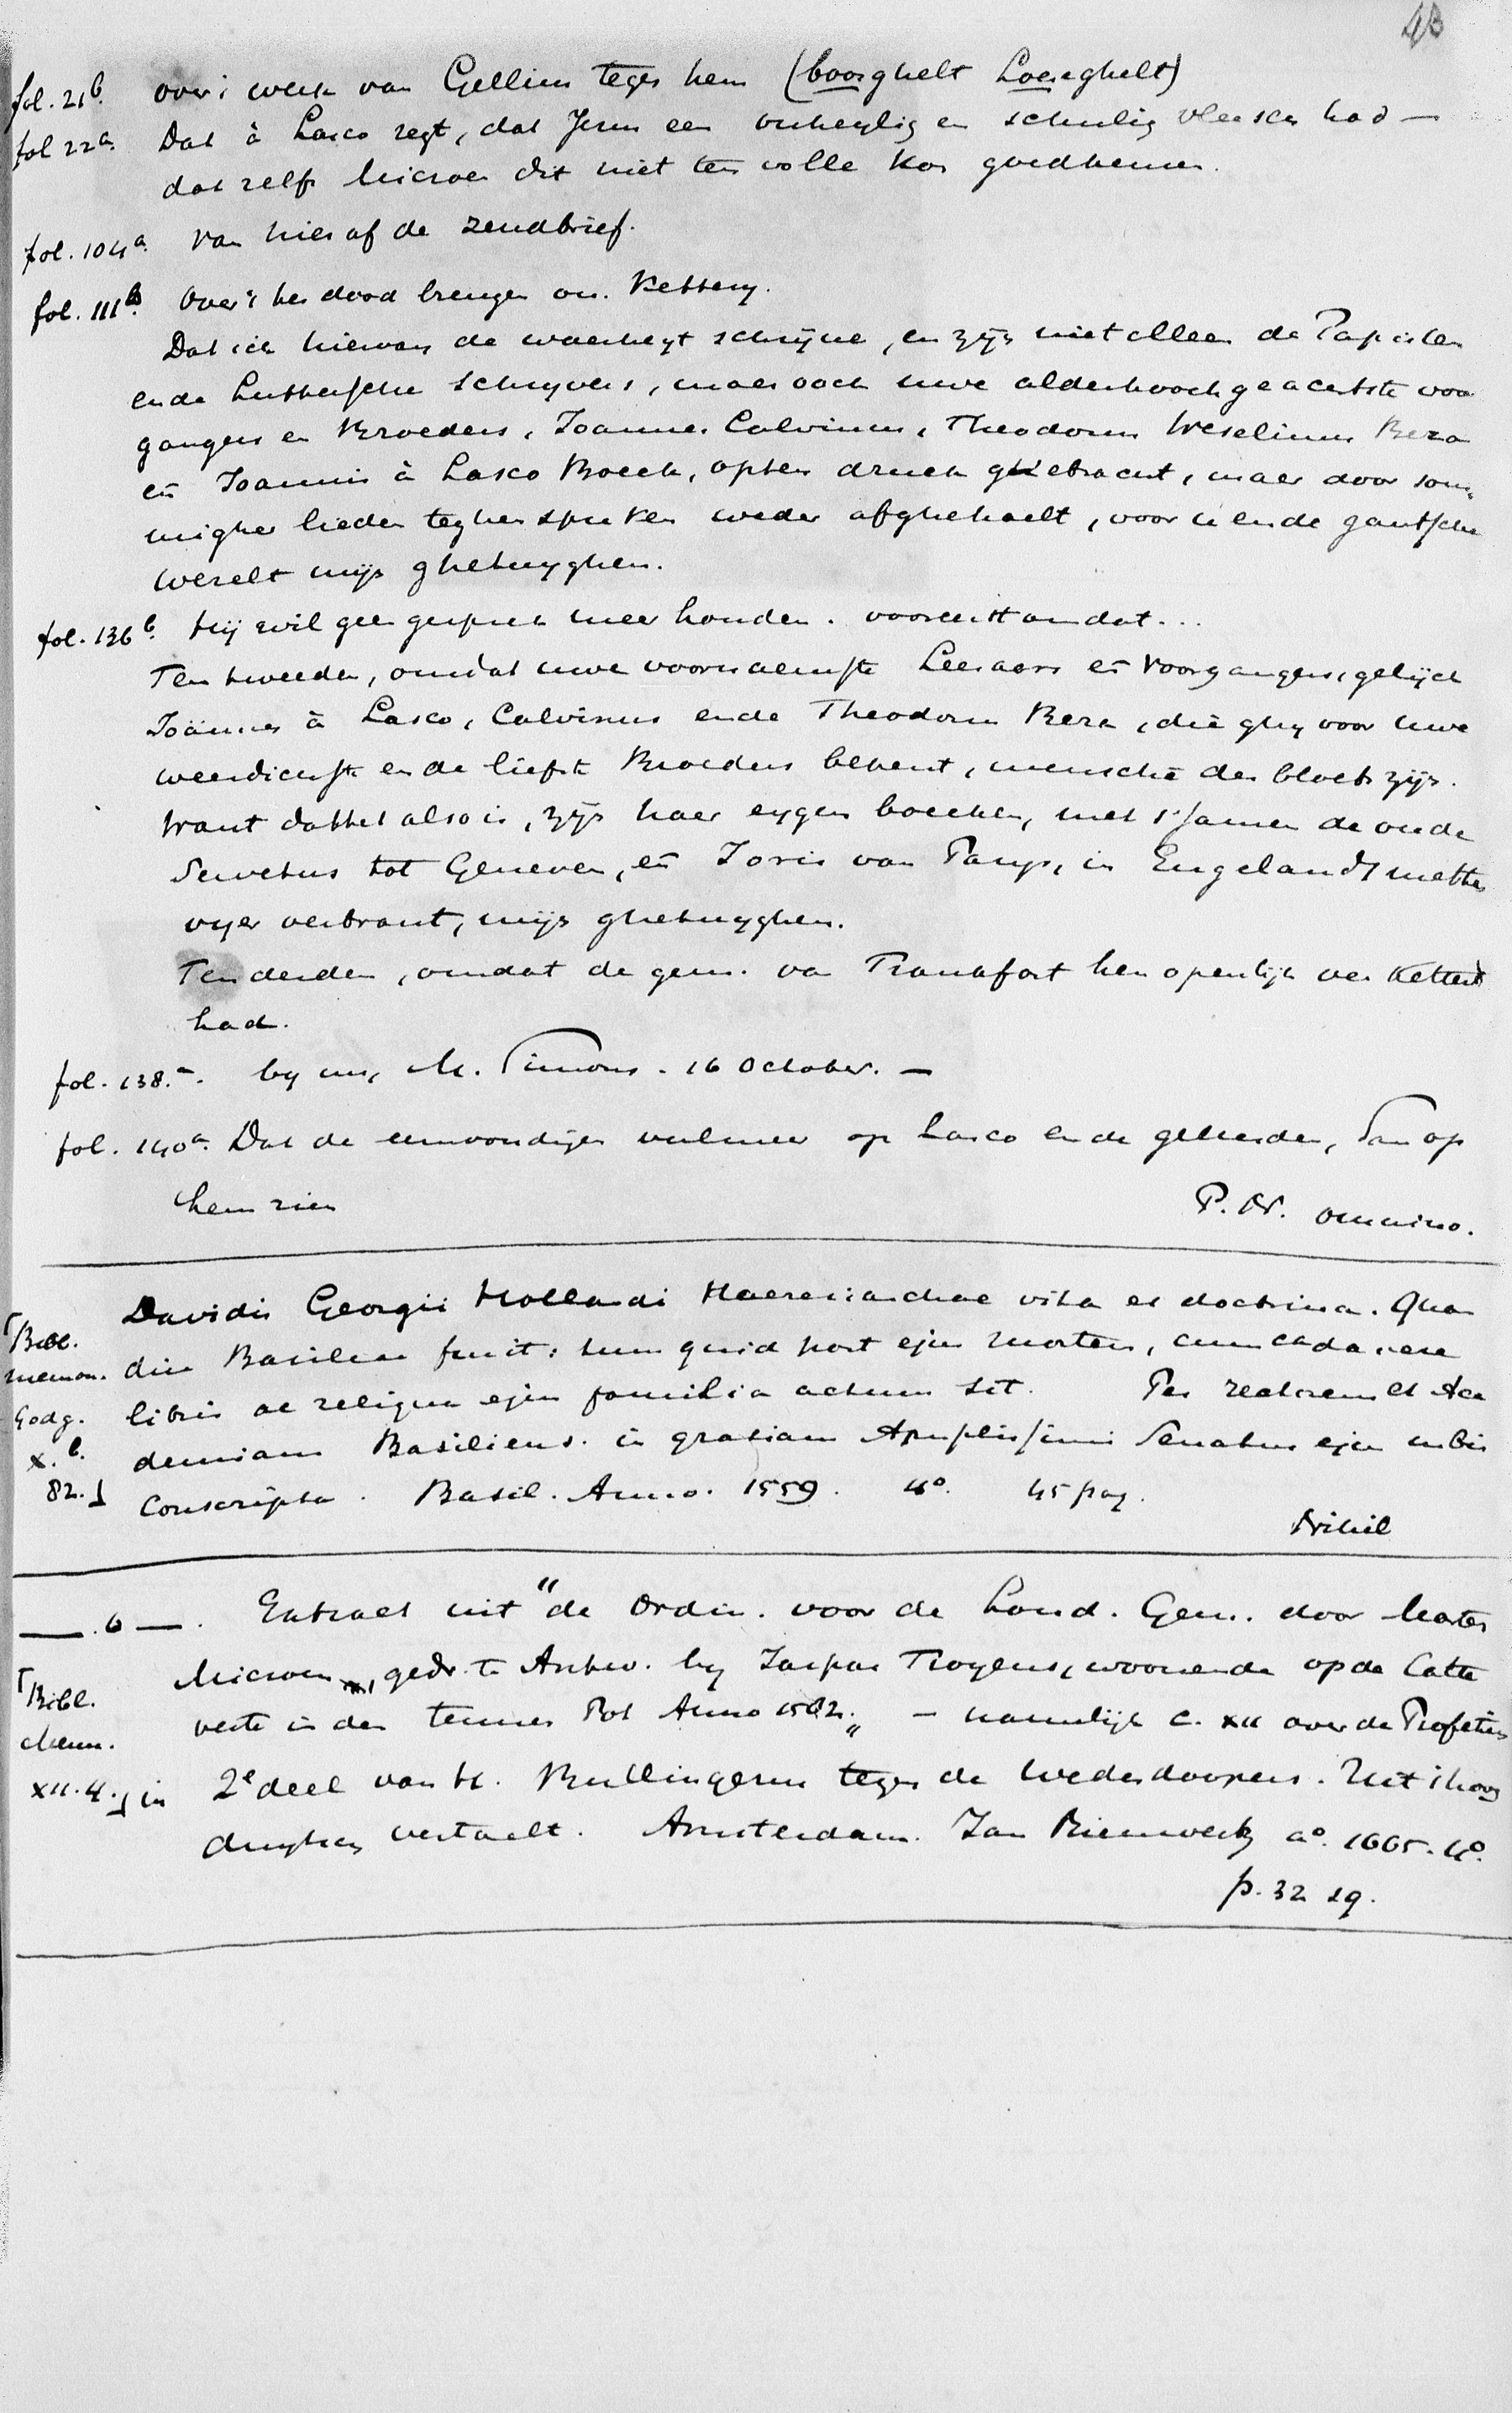 43
fol. 21b. over 't werk van Gellius tegen hem (boosghelt Loeseghelt)
fol 22a. Dat à Lasco zegt, dat Jezus een onheylig en schuldig vleesch had —
dat zelfs Micron dit niet ten volle kon goedkeuren.
fol. 104a. Van hier af de zendbrief.
fol. 111b. Over 't ter dood brengen om. Kettery.
Dat ick hiervan de waerheyt schrijve, en zijn niet alleen de Papisten
ende Luthersche schryvers, maer oock uwe alderhoochgeachtste voor
gangers en Broeders, Joannes Calvinus, Theodorus Weselinus Beza
eñ Joannis à Lasco Boeck, opten druck ghebracht, maer door som-
migher lieden teghenspreken weder afghehaelt, voor u ende gantsche
werelt mijn ghetuyghen.
fol. 136b. Hij wil geen gesprek meer houden. vooreerst omdat...
Ten tweeden, omdat uwe voornaemste Leeraars eñ Voorgangers, gelijck
Joannes à Lasco, Calvinus ende Theodorus Beza, die ghy voor uwe
weerdichste ende liefste Broeders bekent, menschē des bloets zijn.
Want dattet also is, zijn haer eygen boecken, met t'samen de oude
Servetus tot Geneven, eñ Joris van Parys, in Engelandt metten
vyer verbrant, mijn ghetuyghen.
Ten derden, omdat de gem. van Frankfort hen openlijk verketterd
had.
fol. 138.a. by my, M. Simons. 16 October. —
fol. 140a. Dat de eenvoudigen veelmeer op Lasco ende geleerden, dan op
hem zien
P. N. omnino.
[Bibl.
memon.
Godg.
x.b.
82.] Davidis Georgii Hollandi Haeresiarchae vita et doctrina. Quan
diu Basileae fuit: tum quid post ejus mortem, cum cadavere
libris ac reliqua ejus familia actum sit. Per rectorem et Aca
demiam Basiliens. in gratiam Amplissimi Senatus ejus urbis
Conscripta. Basil. Anno. 1559. 4o. 45 pag.
Nihil
—.6—. Extract uit "de Ordin. voor de Lond. Gem. door Marten
[Bibl.
Micron, gedr. te Antw. by Jaspar Troyens, woonende op de Catte
veste in den tennen Pot Anno 1582." — namelijk c. XII over de Profetien
XII. 4.] in 2e deel van H. Bullingerus tegen de Wederdoopers. Uut 't hoog
duytsch vertaelt. Amsterdam. Jan Rieuwertsz ao. 1665. 4o.
p. 32 sq.